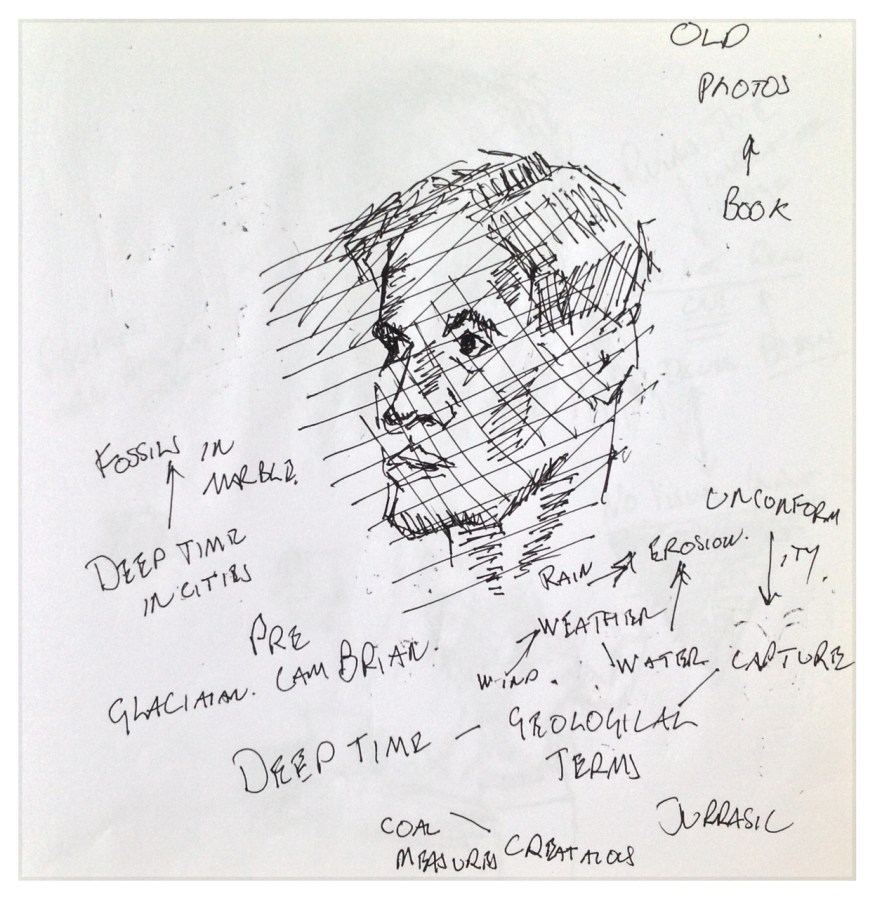 OLD
PHOTOS
BOOK
FOSSILS IN
MARBLE.
DEEP TIME
IN CITIES
UNCONFORM
ITY.
RAIN EROSION.
WEATHER
WIND. WATER CAPTURE
PRE
GLACIAIAN. CAMBRIAN.
DEEP TIME - GEOLOGICAL
TERMS
JURRASIC
COAL
MEASURES CREATALOUS